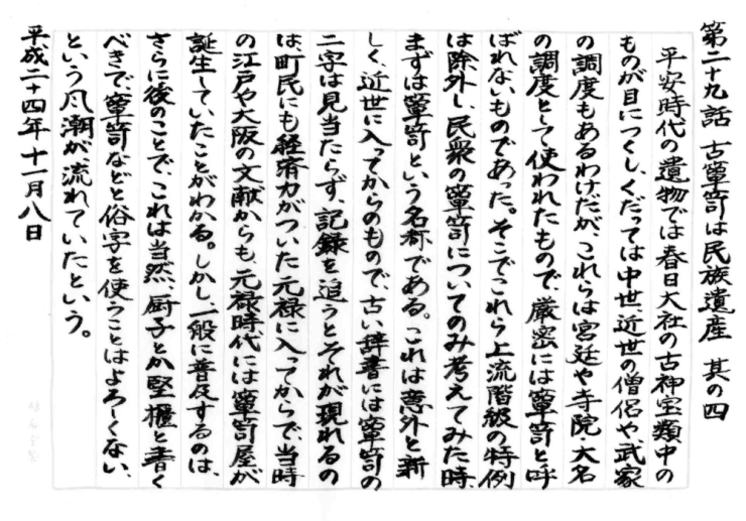 第二十九話 古箪笥は民族遺産 其の四
平安時代の遺物では春日大社の古神宝類中の
ものが目につくし、くだっては中世近世の僧侶や武家
の調度もあるわけだが、これらは宮廷や寺院・大名
の調度として使われたもので、厳密には箪笥と呼
ばれないものであった。そこでこれら上流階級の特例
は除外し、民衆の箪笥についてのみ考えてみた時、
まずは箪笥という名称である。これは意外と新
しく、近世に入ってからのもので、古い辞書には箪笥の
二字は見当たらず、記録を追うとそれが現れるの
は、町民にも経済力がついた元禄に入ってからで、当時
の江戸や大阪の文献からも、元禄時代には箪笥屋が
誕生していたことがわかる。しかし、一般に普及するのは、
さらに後のことで、これは当然、厨子とか竪櫃と書く
べきで、箪笥などと俗字を使うことはよろしくない、
という風潮が、流れていたという。
平成二十四年十一月八日